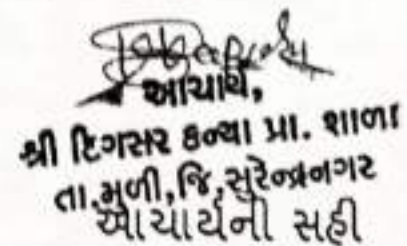 આચાર્ય,
શ્રી દિગસર કન્યા પ્રા. શાળા
તા.મુળી,જિ.સુરેન્દ્રનગર
આચાર્યની સહી